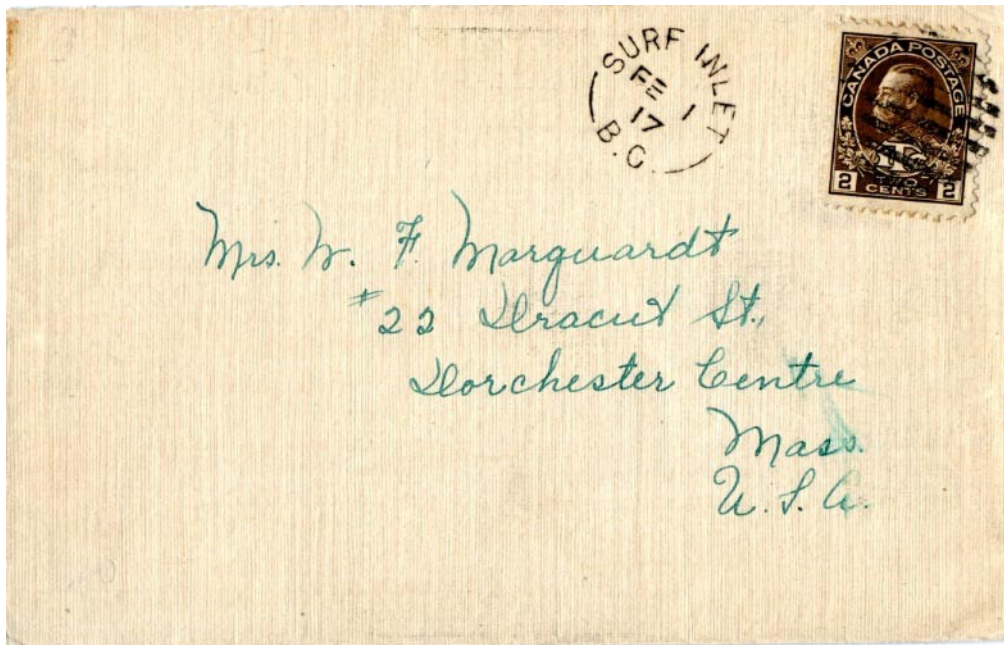 SURF INLET
FE 1
17
B.C.
CANADA POSTAGE
2 TWO CENTS 2
Mrs. W. F. Marquardt
#22 Dracut St.,
Dorchester Centre
Mass.
U.S.A.